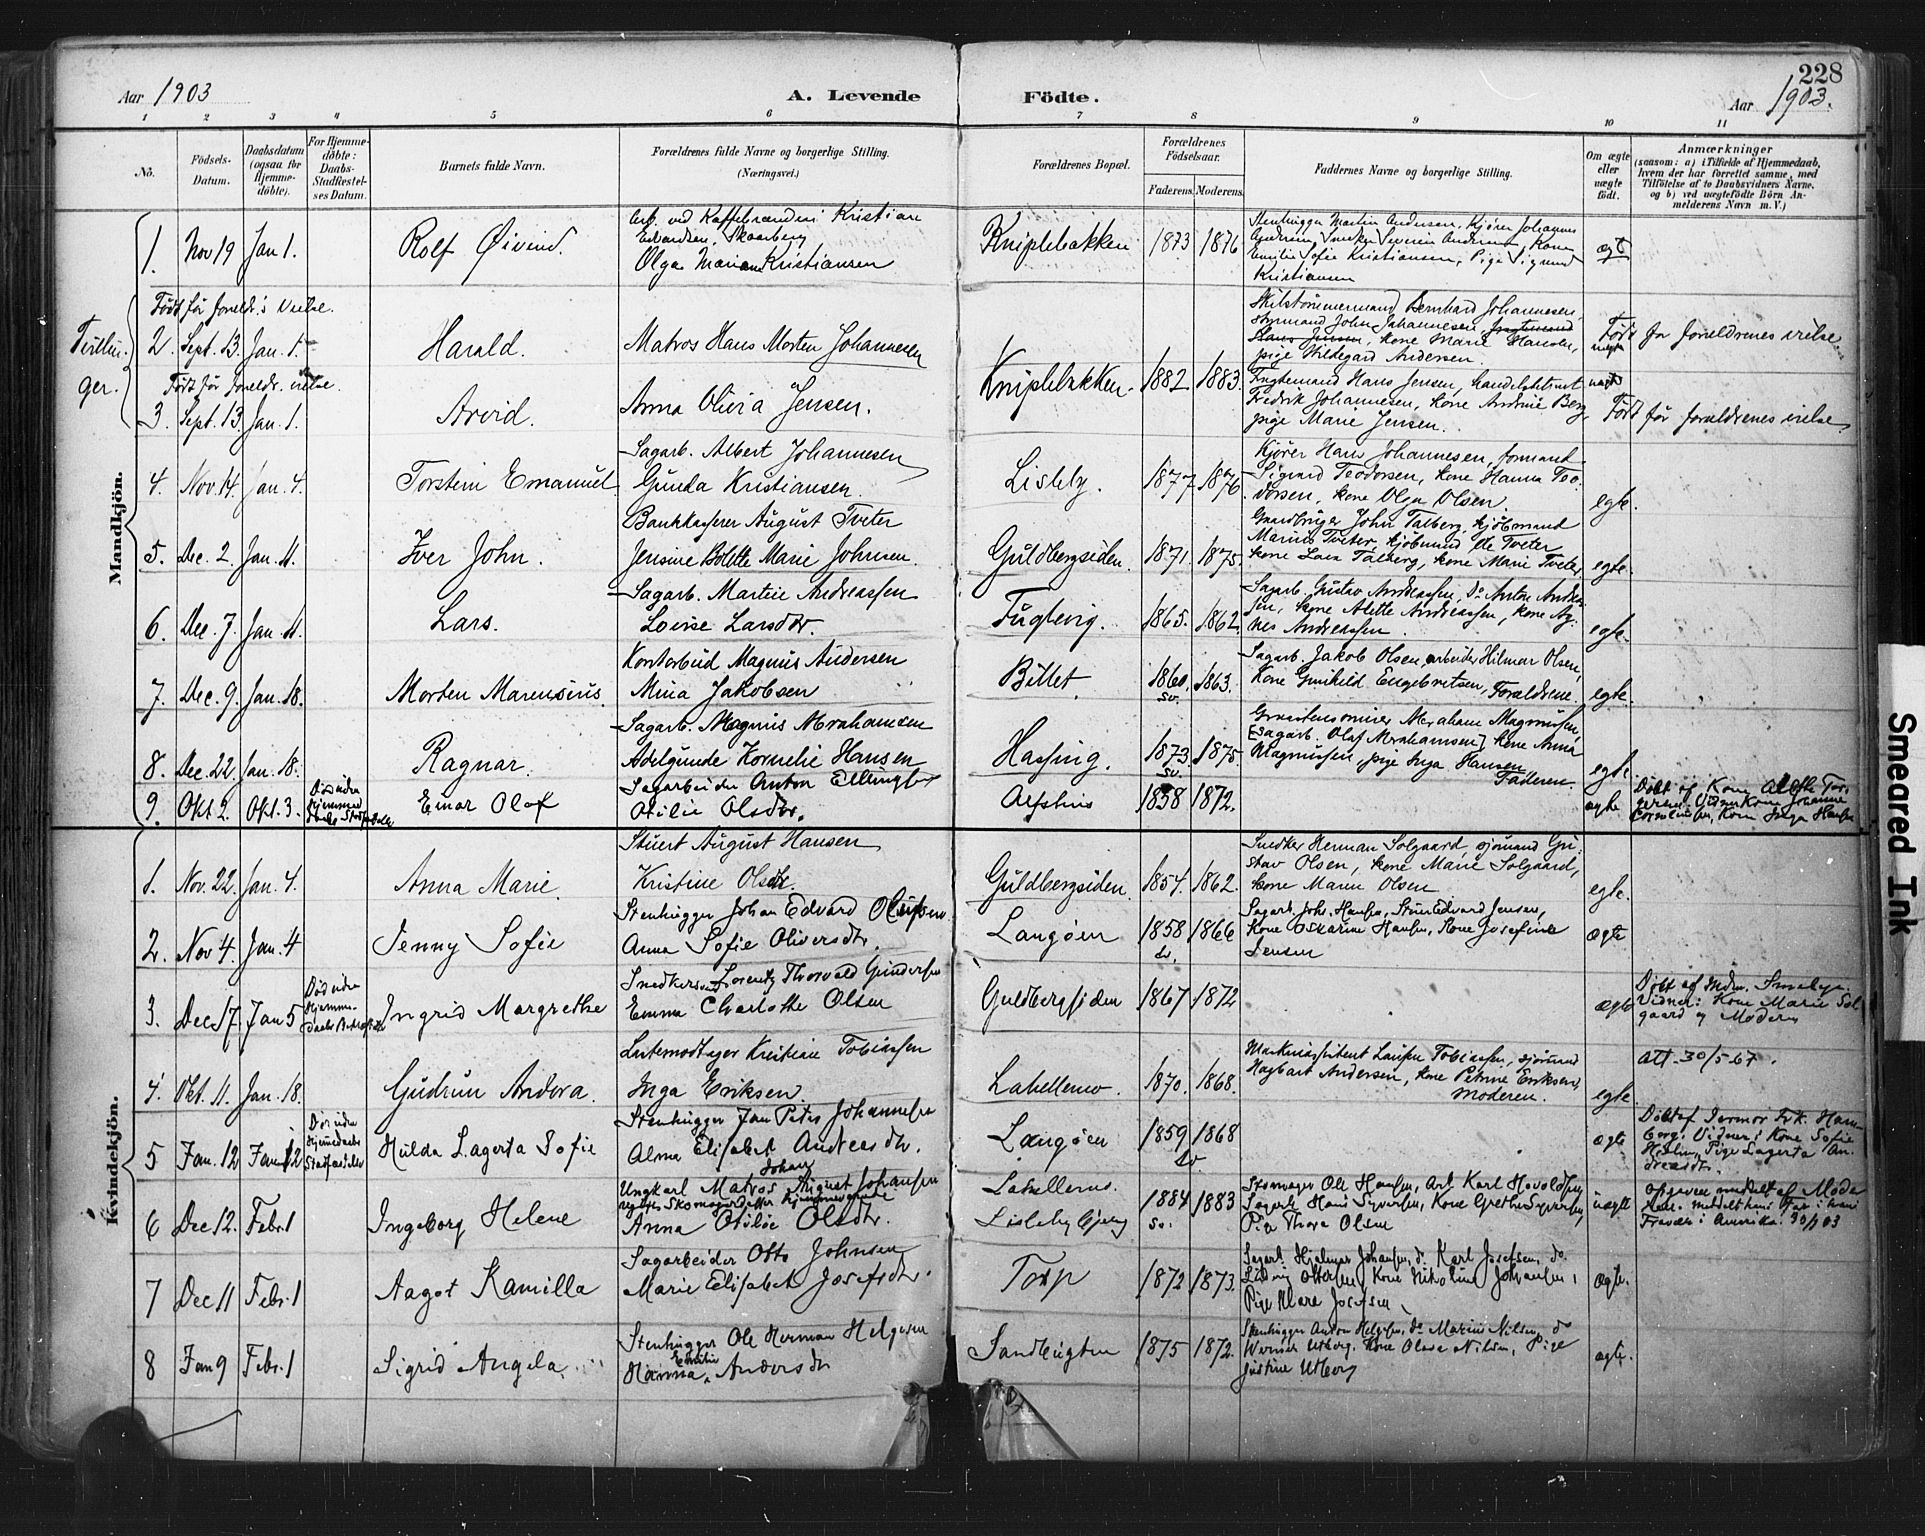 228
Aar 1903
A. Levende
Födte.
Aar 1903.
1 2 3 4 5 6 7 8 9 10 11
No.
Födsels-Datum.
Daabsdatum (ogsaa for Hjemme-döbte).
For Hjemme-döbte: Daabs-Stadfæstel-ses Datum.
Barnets fulde Navn.
Forældrenes fulde Navne og borgerlige Stilling.
(Næringsvei.)
Forældrenes Bopæl.
Forældrenes Födselsaar.
Faderens. Moderens.
Faddernes Navne og borgerlige Stilling.
Om ægte eller uægte födt.
Anmærkninger
(saasom: a) i Tilfælde af Hjemmedaab, hvem der har forrettet samme, med Tilföielse af to Daabsvidners Navne, og b) ved uægtefödte Börn An-melderens Navn m. V.)
Mandkjön.
1. Nov 19 Jan 1. Rolf Øivind.
Arb. ved Kaffebrænderi Kristian
Edvardsen, Skaarberg
Olga Mariane Kristiansen
Kniplebakken 1873 1876
Stenhugger Martin Andersen, Kjører Johannes
Severin Andersen, Kone
Emilie Sofie Kristiansen, Pige Sigrund
Kristiansen
ægte
Født før foreldr.s vielse.
2. Sept. 13. Jan. 1. Harald.
Matros Hans Morten Johannesen
Skibstømmermand Bernhard Johannesen,
styrmand John Johannesen, Hans Jensen, kone Marie Hansen,
pige Hildegard Andersen.
Født før foreldrenes vielse
Født før foreldr. vielse.
Kniplebakken. 1882 1883.
3. Sept. 13. Jan. 1. Arvid.
Anna Olivia Jensen.
Hans Jensen,
Fredrik Johannesen, kone Andrine Berg
pige Marie Jensen.
Født før foreldrenes vielse
4. Nov. 14. Jan. 4. Torstein Emanuel.
Sagarb. Albert Johannesen
Gunda Kristiansen.
Lisleby. 1877 1876
Kjører Hans Johannesen, formand
Sigvard Teodorsen, kone Hanna Teo-
dorsen, kone Olga Olsen.
egte.
5. Dec. 2. Jan. 11. Iver John.
Bankkasserer August Tveter
Jensine Bolette Marie Johnsen.
Guldbergsiden. 1871 1875.
Gaardbruger John Talberg, kjøbmand
Marius Tveter, kjøbmand Ole Tveter
kone Lava Talberg, kone Marie Tveter,
egte.
6. Dec. 7. Jan. 11. Lars.
Sagarb. Martin Andreassen
Lovise Larsdtr.
Fuglevig. 1865. 1862.
Sagarb. Gustav Andreassen, Do Anton Andrea-
sen, kone Alette Andreassen, kone Ag-
nes Andreassen.
egte.
7. Dec. 9. Jan. 18. Morten Marensius.
Kontorbud Magnus Andersen
Mina Jakobsen
Billet. 1860. sv. 1863.
Sagarb. Jakob Olsen, arbeider Hilmar Olsen,
kone Gunhild Engebretsen, Foreldrene.
egte.
8. Dec. 22. Jan. 18. Ragnar.
Sagarb. Magnus Abrahamsen
Adelgunde Kornelie Hansen
Hassing. 1873 sv. 1875.
Abraham Magnussen,
[Sagarb. Olaf Abrahamsen] kone Anna
Magnussen, pige Inga Hansen
Faderen.
egte
9. Okt 2. Okt. 3.
Død uden Hjemmed
Einar Olaf
Sagarbeider Anton
Otilie Olsdtr.
1858 1872.
ægte
Døbt af Kone
Vidner Kone Johanne
Kone Inga Hansen
Kvindekjön.
1. Nov. 22. Jan. 4. Anna Marie
Stuert August Hansen
Kristine Olsdtr.
Guldbergsiden. 1854. 1862.
Snedker Herman Solgaard, sjømand Gu-
stav Olsen, kone Marie Solgaard,
kone Maren Olsen
egte.
2. Nov 4. Jan. 4 Jenny Sofie
Stenhugger Johan Edvard
Anna Sofie Oliversdtr.
Langøen 1858 sv. 1866
Sagarb. Joh. Hansen, Edvard Jensen,
Kone Oskarine Hansen, Kone Josefine
Jensen
ægte
3. Dec 17. Jan 5
Død uden Hjemme-
Ingrid Margrethe
Snedkersvend Lorentz Thorvald Gundersen
Emma Charlotte Olsen
Guldbergsiden 1867 1872
ægte
Døbt af
Vidner: Kone Marie Sol-
gaard og Moderen
4. Okt. 11. Jan. 18. Gudrun Andora.
Kristian Tobiassen
Inga Eriksen.
Labellemo. 1870. 1868.
Tobiassen, sjømand
Hagbart Andersen, kone Petrine Eriksen,
Moderen.
egte.
Att. 30/5-67.
5 Jan. 12 Jan 12
Død uden Hjemmedaabs
Hulda Lagerta Sofie
Stenhugger Jens Peter Johannesen
Alma Elisabet Andreasdtr.
Langøen 1859 1868 sv
ægte
Døbt af Jormor Frk. Ham-
berg. Vidner: Kone Sofie
Pige Lagerta An-
dreasdtr.
6 Dec 12. Febr. 1 Ingeborg Helene
Ungkarl Matros Johan August Johansen
Anna Otilie Olsdtr.
Labellemo.
1884 sv. 1883
Ole Hansen, Arb. Karl
Sagarb. Hans Syversen, Kone Grethe Syversen,
Pige Thora Olsen
uægte
Opgaven
Fravær i Amerika.
7 Dec 11 Febr. 1 Aagot Kamilla
Sagarbeider Otto Johnsen
Marie Elisabet Josefsdtr.
Torp 1872 1873.
Sagarb. Hjalmar Johansen, do Karl Josefsen, do
Ludvig Ottersen, Kone Nikoline Johansen,
Pige Klara Josefsen
ægte.
8 Jan 9 Febr. 1 Sigrid Angela.
Stenhugger Ole Herman Helgesen
Hanna Emilie Andersdtr
Sandbugten 1875 1872.
Stenhugger Anton Helgesen, do Marius Nilsen, do
Werner Utberg, Kone Olava Nilsen, Pige
Justine Utberg
ægte.
Smeared Ink